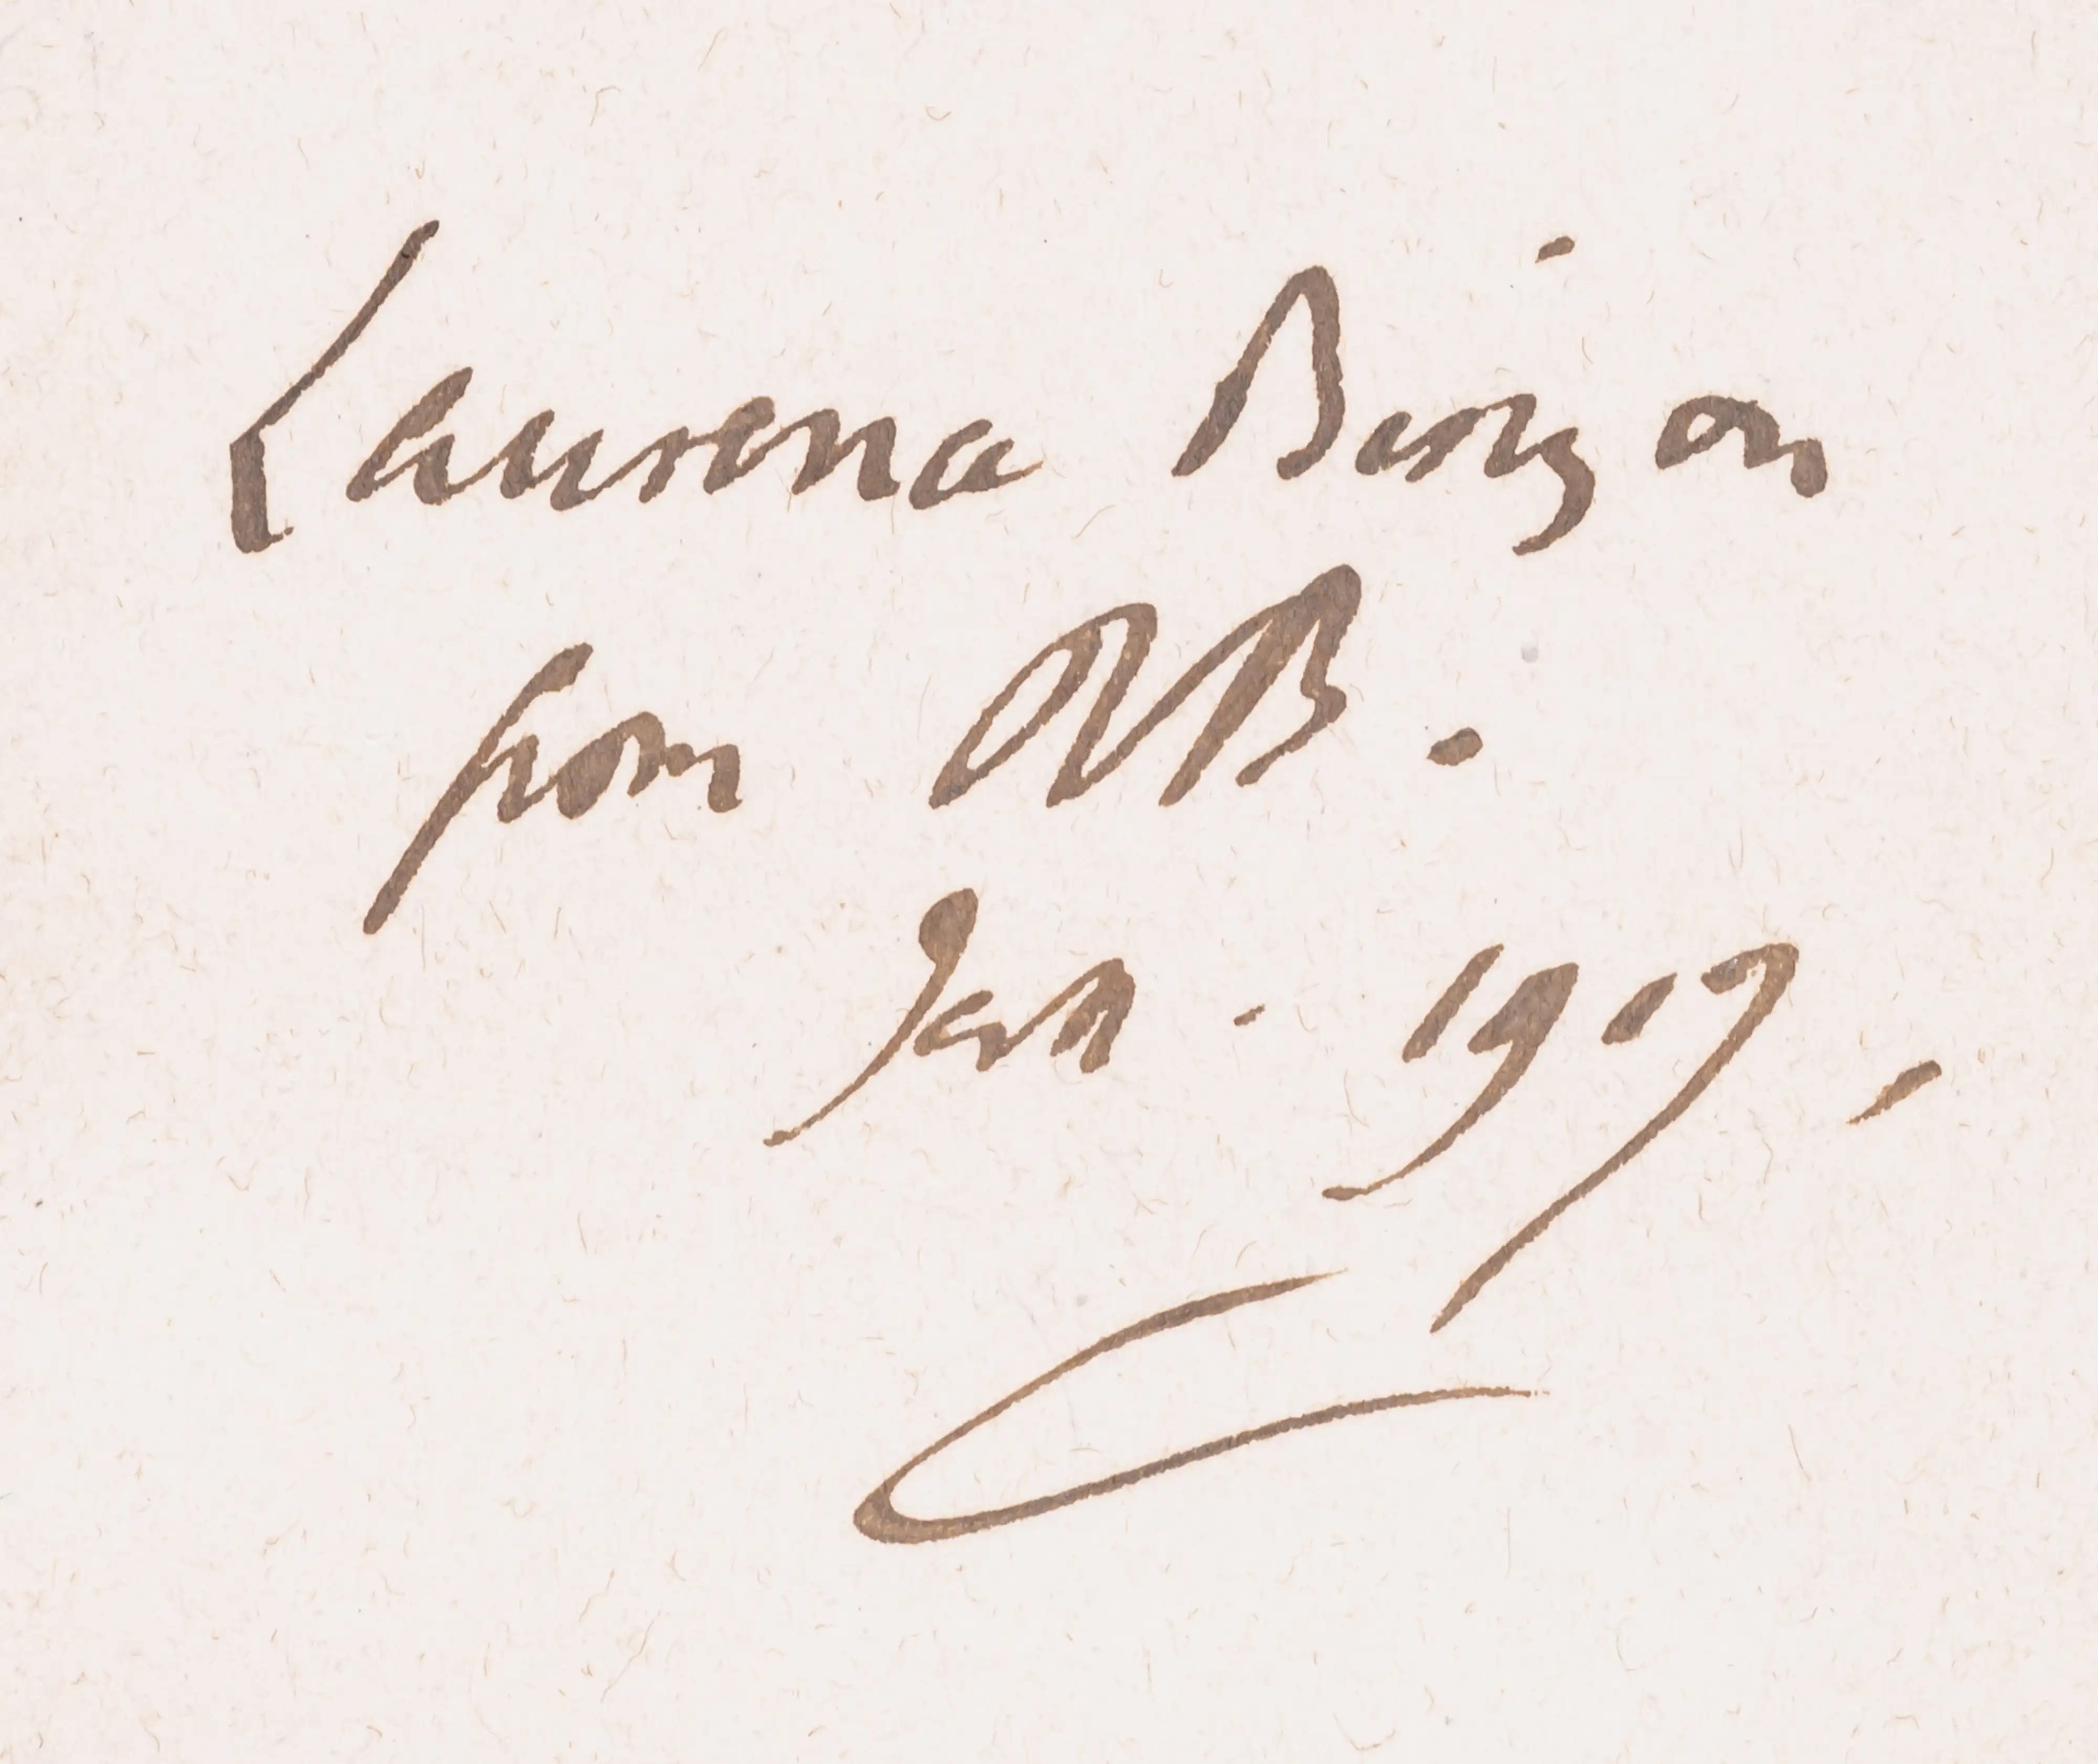 Laurence Binyon
from RB.
Jan. 1917.